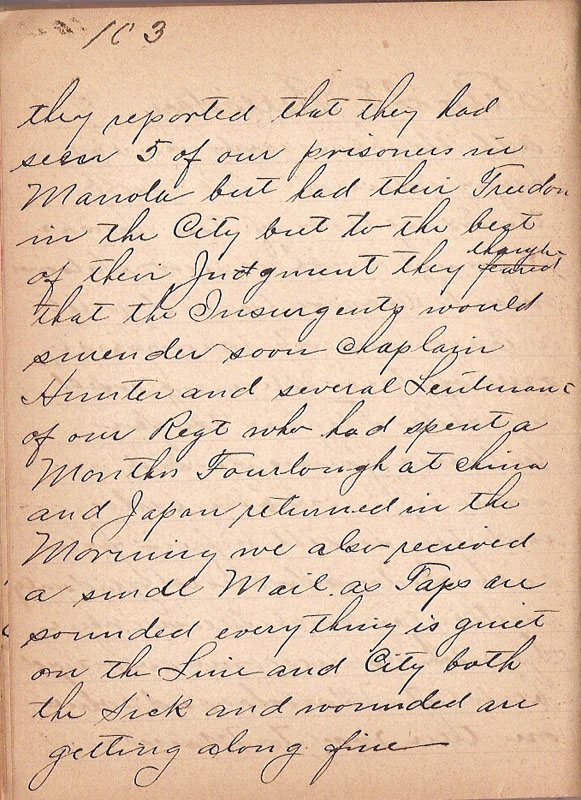 103
they reported that they had
seen 5 of our prisoners in
Manola but had their Freedom
in the City but to the best
of their Judgment they though
feared
that the Insurgents would
surender soon Chaplain
Hunter and several Leiutenant
of our Regt who had spent a
Months Fourlough at China
and Japan returned in the
Morning we also recieved
a small Mail. as Taps are
sounded everything is quiet
on the Line and City both
the Sick and wounded are
getting along fine